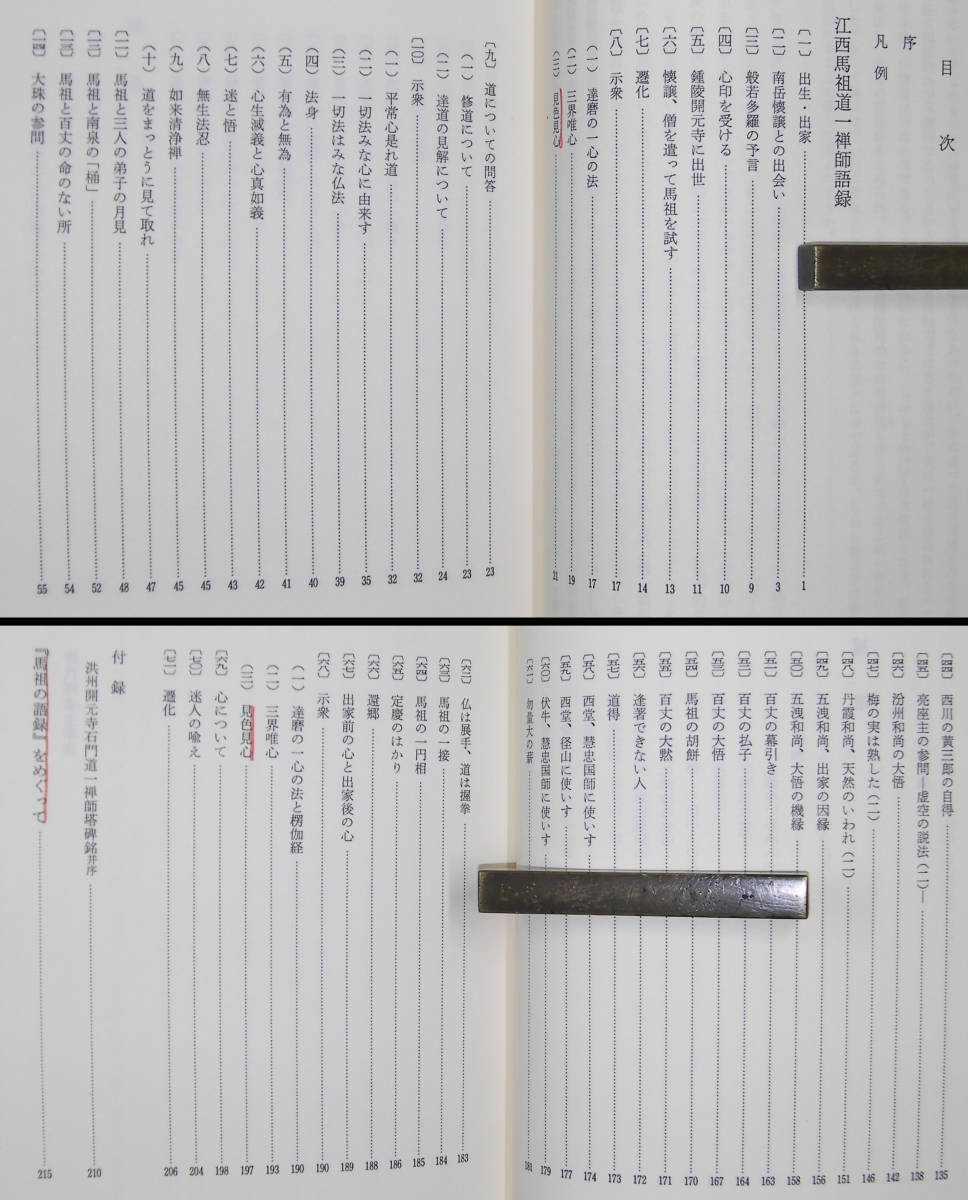 目次
序
凡例
江西馬祖道一禅師語録
〔一〕 出生・出家 1
〔二〕 南岳懐譲との出会い 3
〔三〕 般若多羅の予言 9
〔四〕 心印を受ける 10
〔五〕 鍾陵開元寺に出世 11
〔六〕 懐譲、僧を遣って馬祖を試す 13
〔七〕 遷化 14
〔八〕 示衆 17
（一） 達磨の一心の法 17
（二） 三界唯心 19
（三） 見色見心 21
〔九〕 道についての問答 23
（一） 修道について 23
（二） 達道の見解について 24
〔一〇〕 示衆 32
（一） 平常心是れ道 32
（二） 一切法みな心に由来す 35
（三） 一切法はみな仏法 39
（四） 法身 40
（五） 有為と無為 41
（六） 心生滅義と心真如義 42
（七） 迷と悟 43
（八） 無生法忍 45
（九） 如来清浄禅 45
（十） 道をまっとうに見て取れ 47
〔一一〕 馬祖と三人の弟子の月見 48
〔一二〕 馬祖と南泉の「桶」 52
〔一三〕 馬祖と百丈の命のない所 54
〔一四〕 大珠の参問 55
〔四四〕 西川の黄三郎の自得 135
〔四五〕 亮座主の参問―虚空の説法（二）― 138
〔四六〕 汾州和尚の大悟 142
〔四七〕 梅の実は熟した（二） 146
〔四八〕 丹霞和尚、天然のいわれ（二） 151
〔四九〕 五洩和尚、出家の因縁 156
〔五〇〕 五洩和尚、大悟の機縁 158
〔五一〕 百丈の幕引き 163
〔五二〕 百丈の払子 164
〔五三〕 百丈の大悟 167
〔五四〕 馬祖の胡餅 170
〔五五〕 百丈の大黙 171
〔五六〕 逢著できない人 172
〔五七〕 道得 173
〔五八〕 西堂、慧忠国師に使いす 174
〔五九〕 西堂、径山に使いす 177
〔六〇〕 伏牛、慧忠国師に使いす 179
〔六一〕 勿量大の薪 181
〔六二〕 仏は展手、道は握拳 183
〔六三〕 馬祖の一接 184
〔六四〕 馬祖の一円相 185
〔六五〕 定慶のはかり 186
〔六六〕 還郷 188
〔六七〕 出家前の心と出家後の心 189
〔六八〕 示衆 190
（一） 達磨の一心の法と楞伽経 190
（二） 三界唯心 193
（三） 見色見心 197
〔六九〕 心について 198
〔七〇〕 迷人の喩え 204
〔七一〕 遷化 206
付録
洪州開元寺石門道一禅師塔碑銘并序 210
『馬祖の語録』をめぐって 215